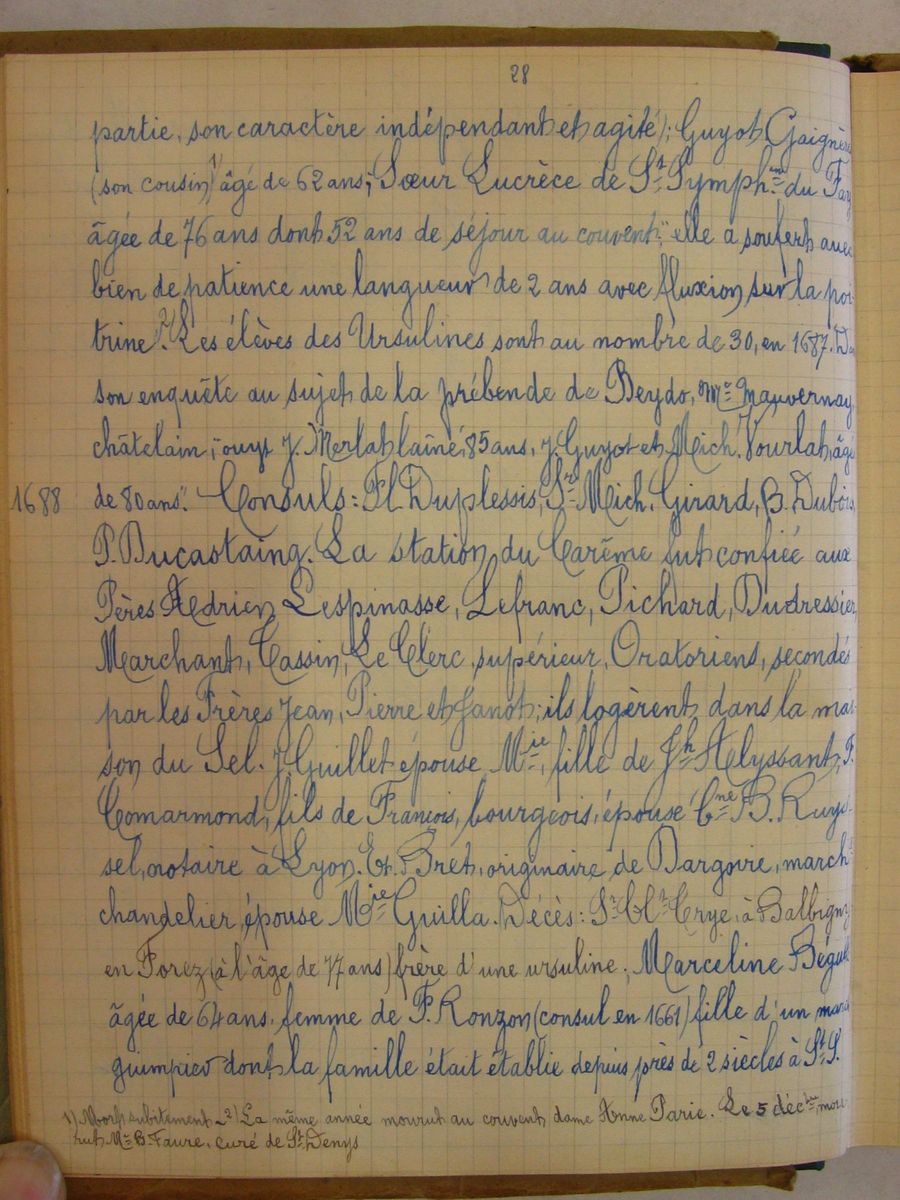 28
partie, son caractère indépendant et agité); Guyot Gaignère
(son cousin) 1) âgé de 62 ans; Sœur Lucrèce de St Symphn du Fay
âgée de 76 ans dont 52 ans de séjour au couvent; elle a soufert avec
bien de patience une langueur de 2 ans avec fluxion sur la poi-
trine". 2) Les élèves des Ursulines sont au nombre de 30, en 1687.
son enquête au sujet de la prébende de Beydo, Me Mauvernay,
châtelain, "ouyt J. Merlat l'aîné, 85 ans, J. Guyot et Mich. Vourlat, âgé
1688 de 80 ans". Consuls: Fl. Duplessis, Sr Mich. Girard, B. Dubois,
P. Ducastaing. La station du Carême fut confiée aux
Pères Adrien, Lespinasse, Lefranc, Pichard, Dudressier,
Marchant, Cassin, Le Clerc, supérieur, Oratoriens, secondés
par les Frères Jean, Pierre et Janot; ils logèrent dans la mai-
son du Sel. J. Guillet épouse Mie, fille de Jh Alyssant, F.
Comarmond, fils de François, bourgeois, épouse Cne B. Ruys-
sel, notaire à Lyon. Et. Brét, originaire de Dargoire, march
chandelier, épouse Mie Guilla. Décès: Sr Cl. Crye, à Balbigny
en Forez (à l'âge de 77 ans) frère d'une ursuline; Marceline
âgée de 64 ans, femme de F. Ronzon (consul en 1661) fille d'un
guimpier dont la famille était établie depuis près de 2 siècles à St S.
1) Mort subitement - 2) La même année mourut au couvent dame Anne Parie. Le 5 décbre, mou-
rut Me B. Faure, curé de St Denys